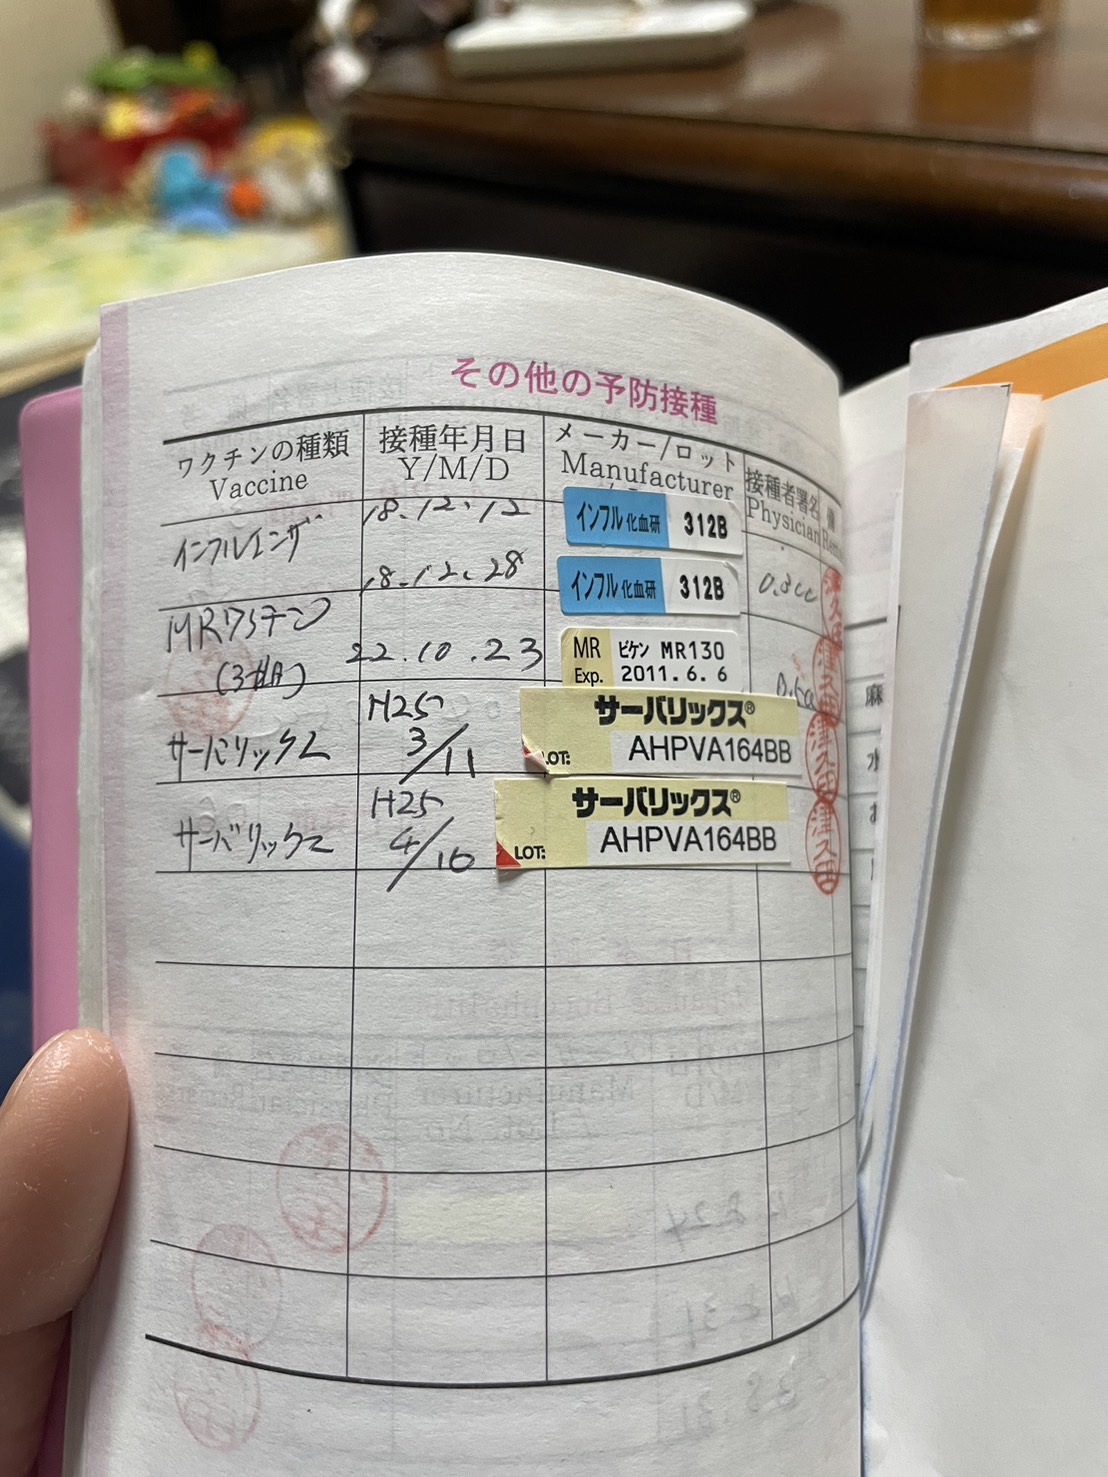 その他の予防接種
ワクチンの種類 接種年月日 メーカー/ロット 接種者署名 備
Vaccine Y/M/D Manufacturer Physician Rem
インフルエンザ 18.12.12 インフル 化血研 312B
18.12.28 インフル 化血研 312B 0.3cc
MRワクチン
(3期) 22.10.23 MR ビケン MR130
Exp. 2011.6.6
サーバリックス H25 3/11 サーバリックス®
LOT: AHPVA164BB
サーバリックス H25 4/16 サーバリックス®
LOT: AHPVA164BB
麻
水
お